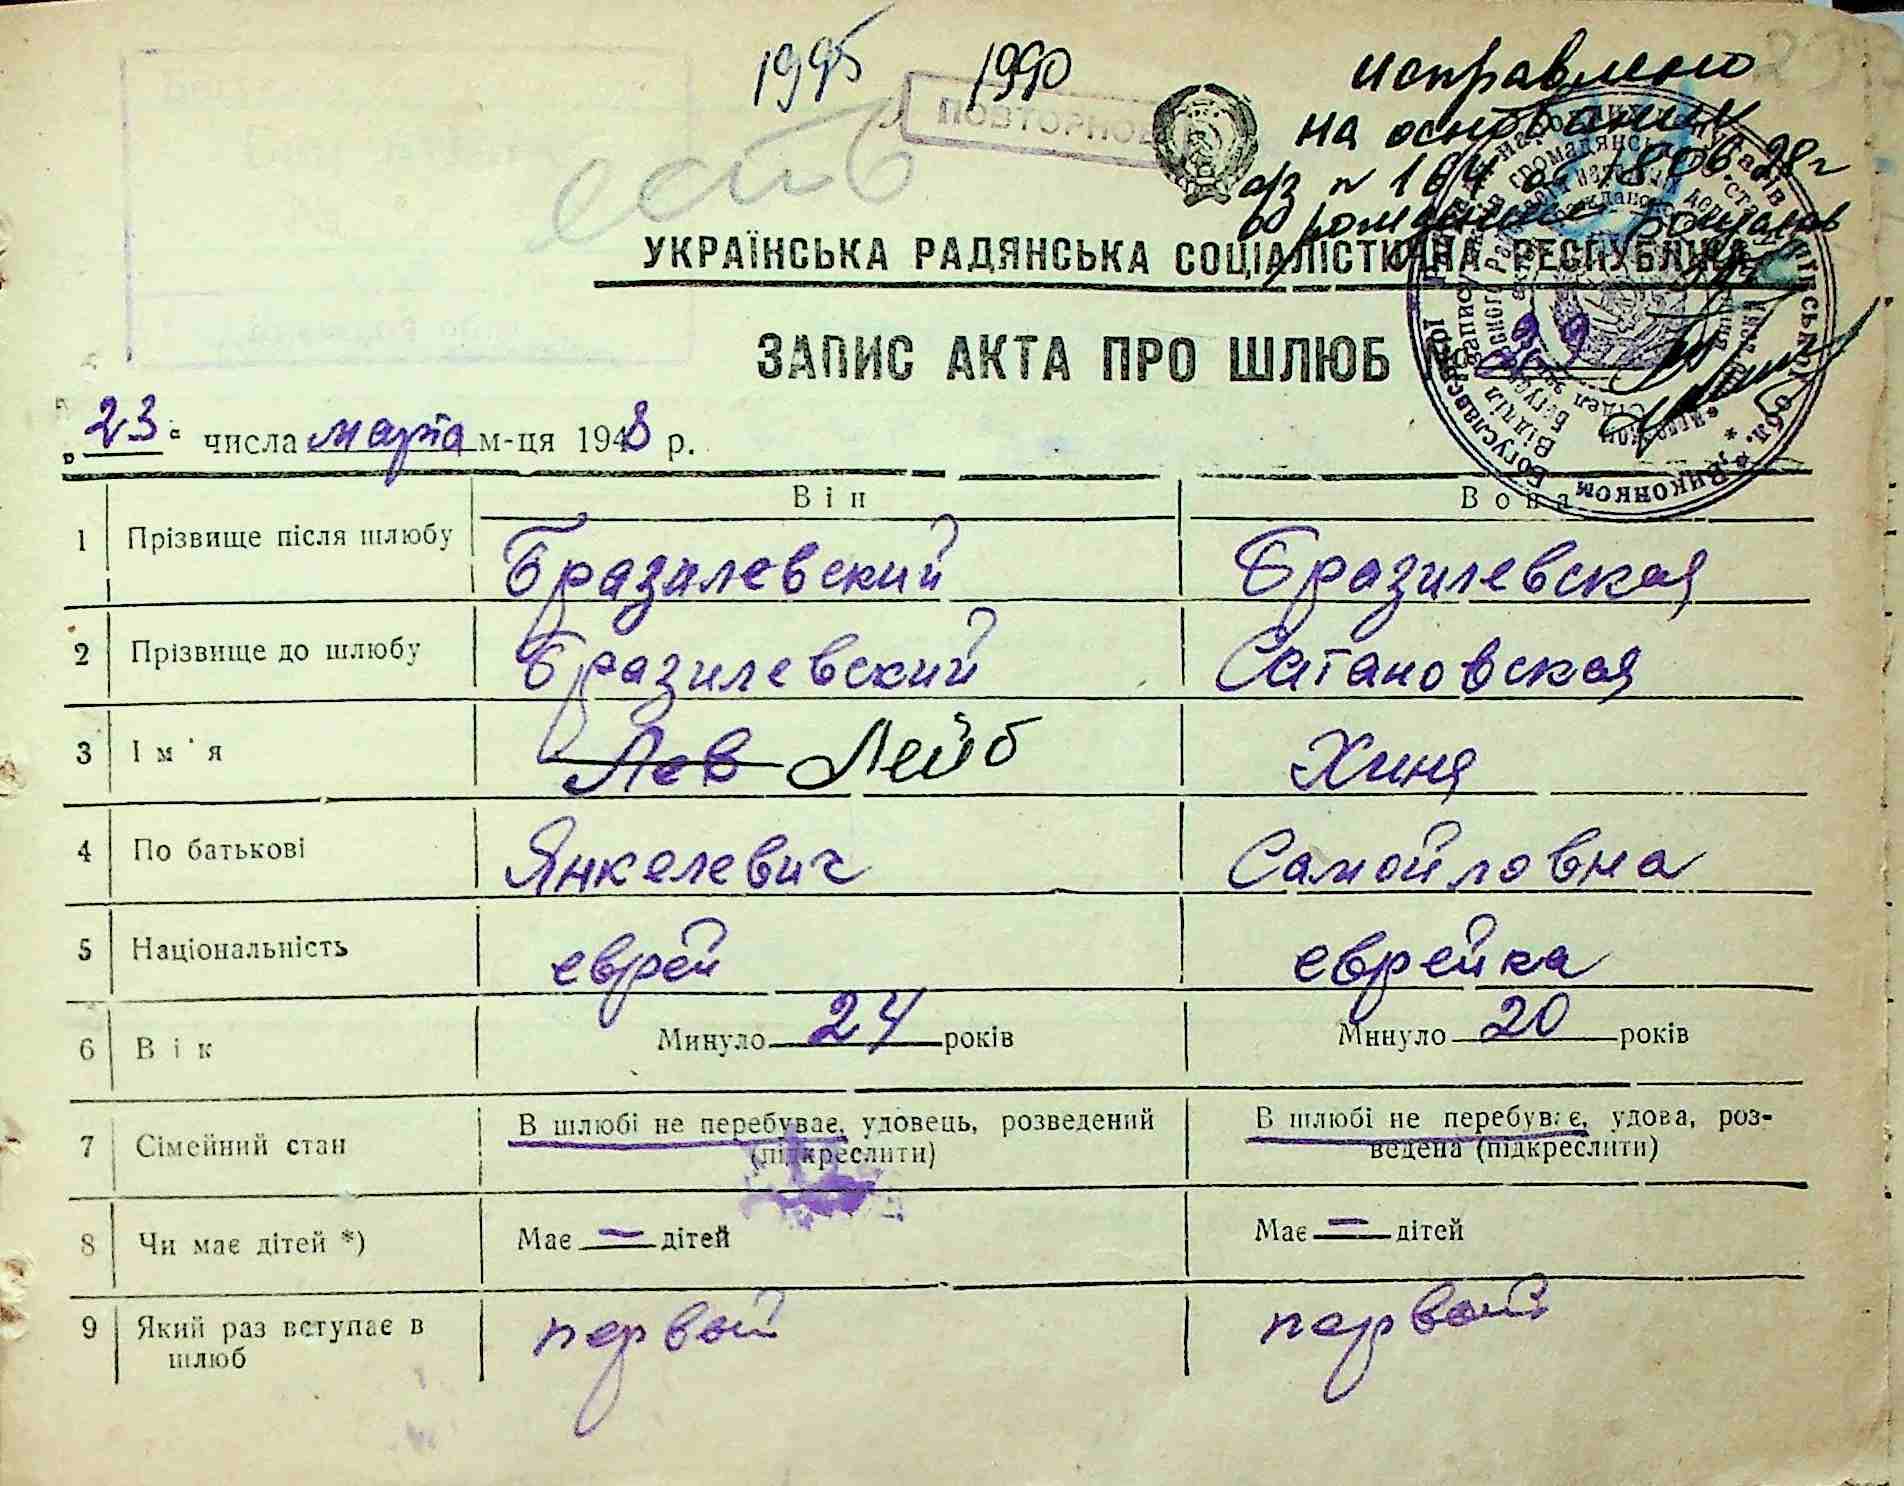 1995 1990
исправлено
на основании
а/з № 164 от 18.06.28г
о рождении
есть
ПОВТОРНОЕ
УКРАЇНСЬКА РАДЯНСЬКА СОЦІАЛІСТИЧНА РЕСПУБЛІКА
ЗАПИС АКТА ПРО ШЛЮБ №
„23“ числа марта м-ця 1948 р.
Він Вона
1 Прізвище після шлюбу Бразилевский Бразилевская
2 Прізвище до шлюбу Бразилевский Сатановская
3 Ім'я Лев Лейб Хиня
4 По батькові Янкелевич Самойловна
5 Національність еврей еврейка
6 Вік Минуло 24 років Минуло 20 років
7 Сімейний стан В шлюбі не перебуває, удовець, розведений (підкреслити) В шлюбі не перебуває, удова, роз-
ведена (підкреслити)
8 Чи має дітей *) Має — дітей Має — дітей
9 Який раз вступає в первый первый
шлюб